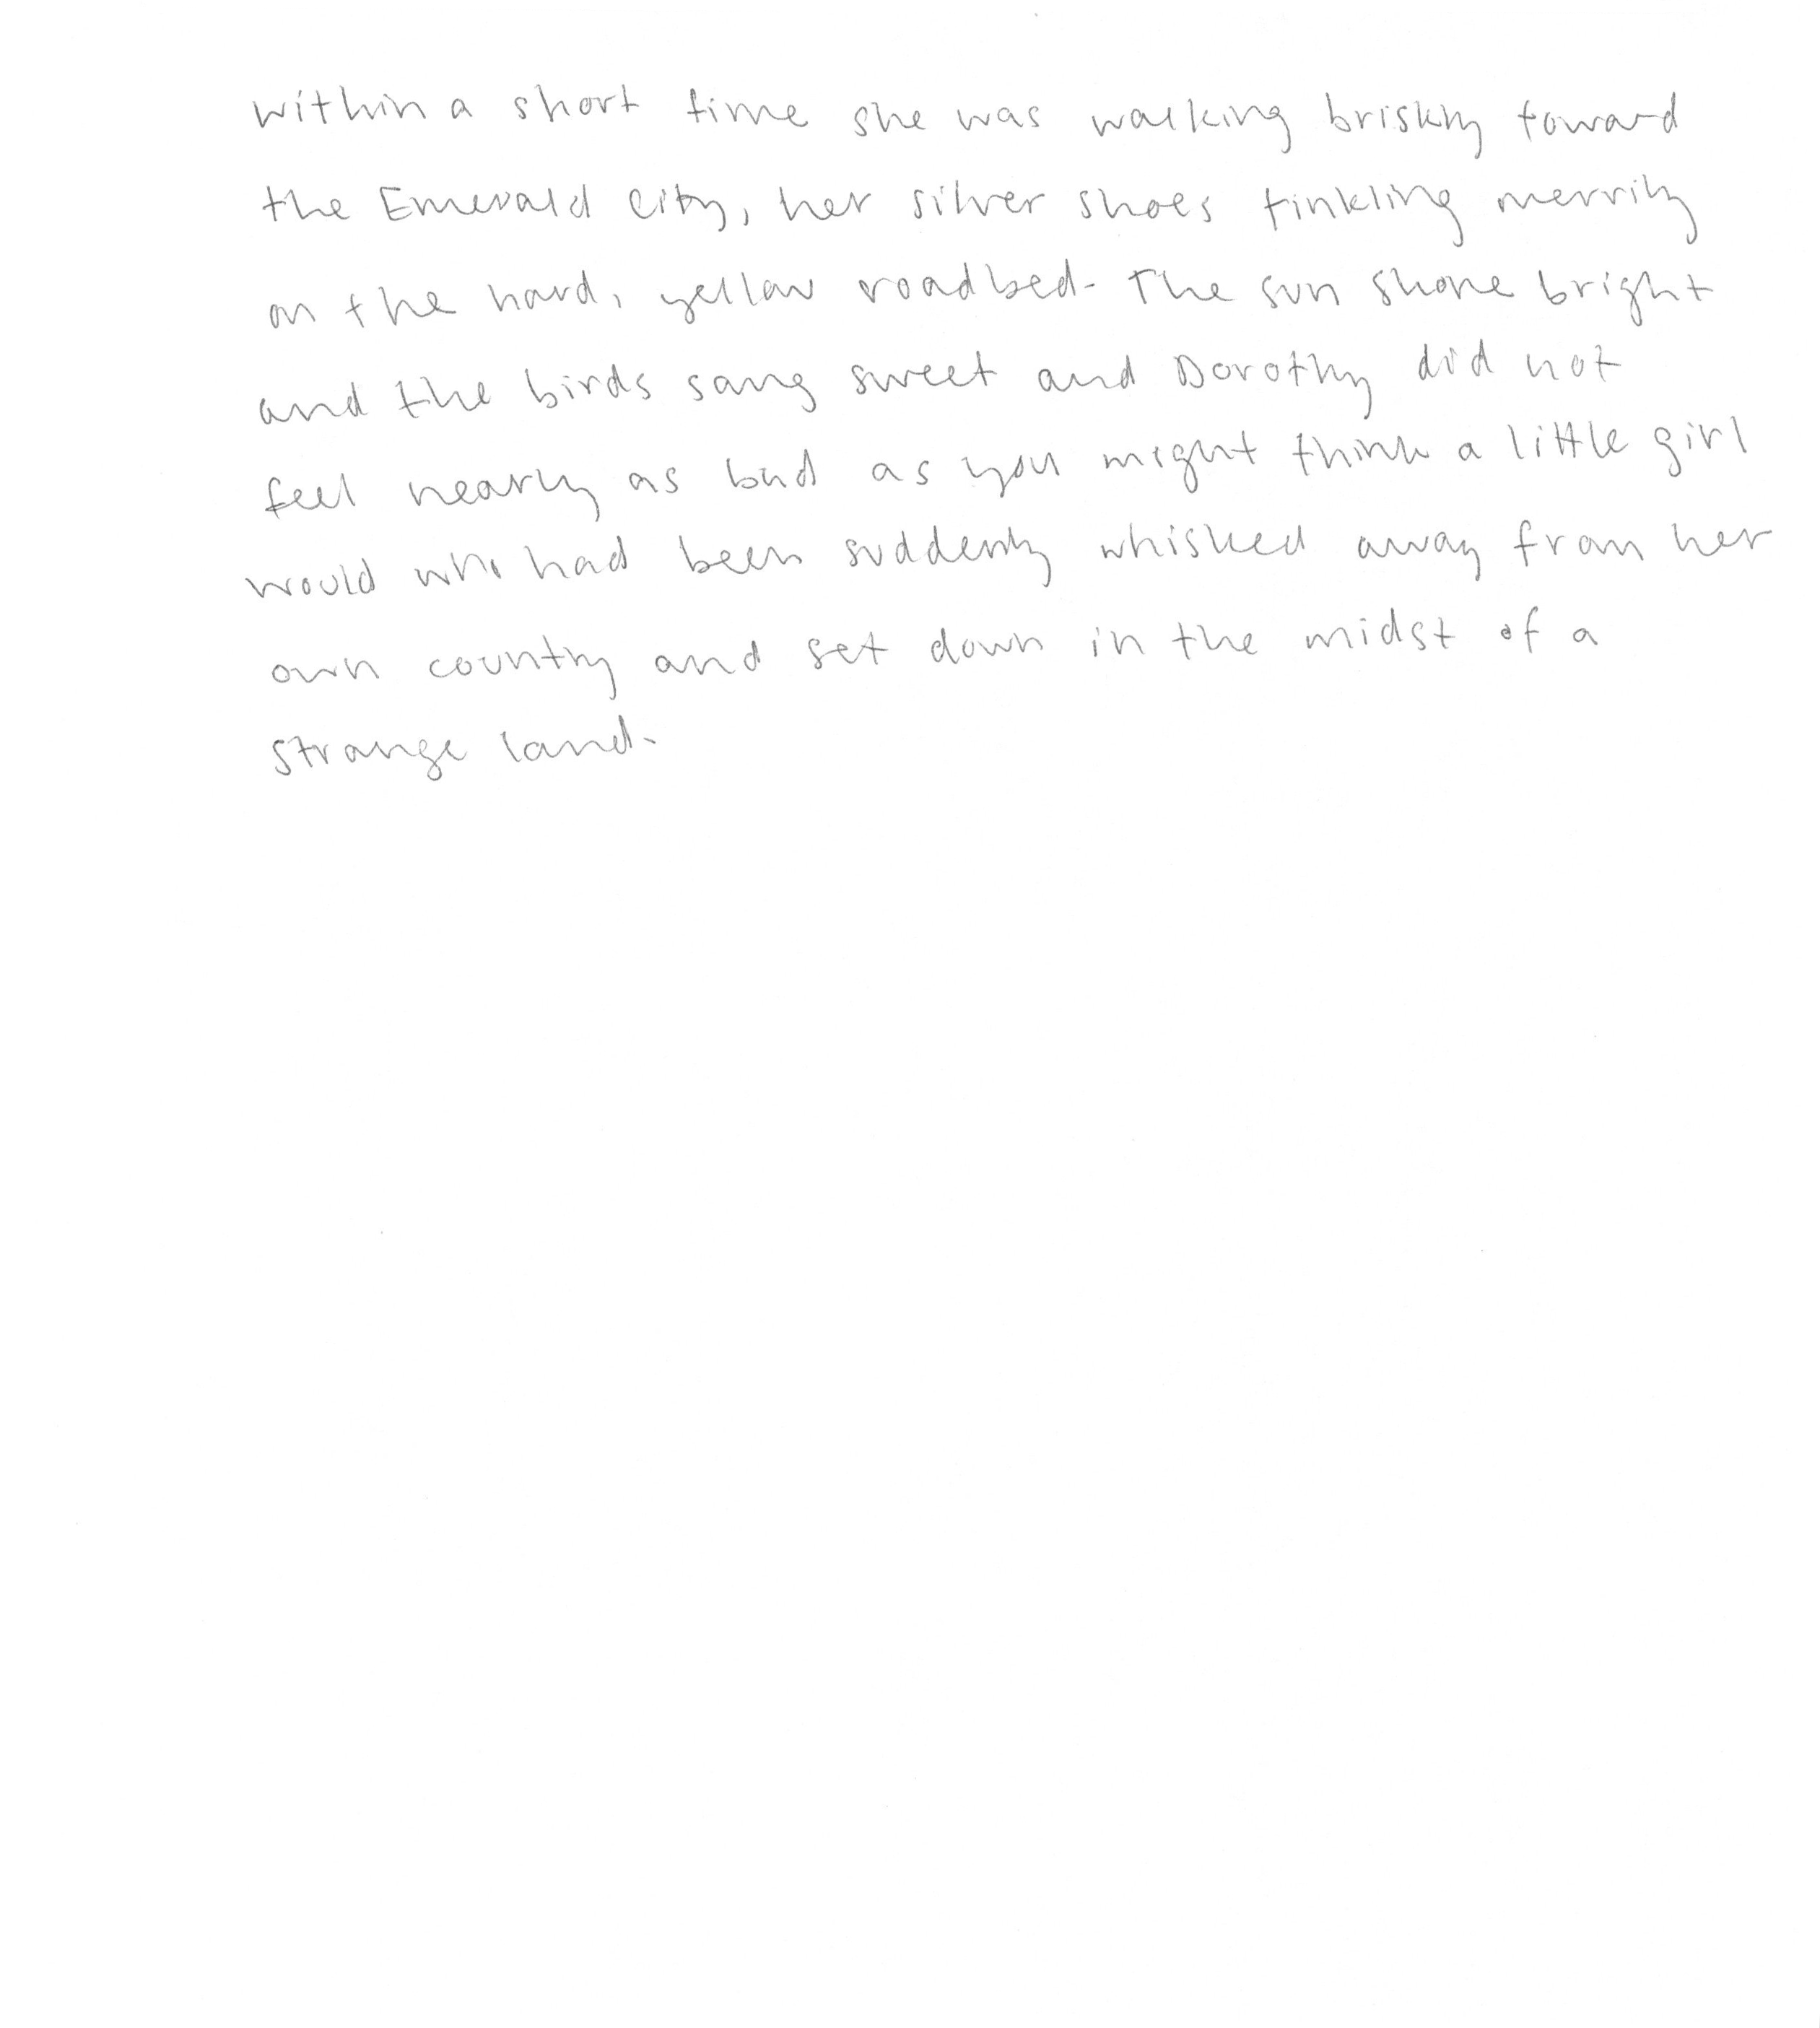 within a short time she was walking briskly toward
the Emerald City, her silver shoes tinkling merrily
on the hard, yellow roadbed. The sun shone bright
and the birds sang sweet and Dorothy did not
feel nearly as bad as you might think a little girl
would who had been suddenly whisked away from her
own country and set down in the midst of a
strange land.